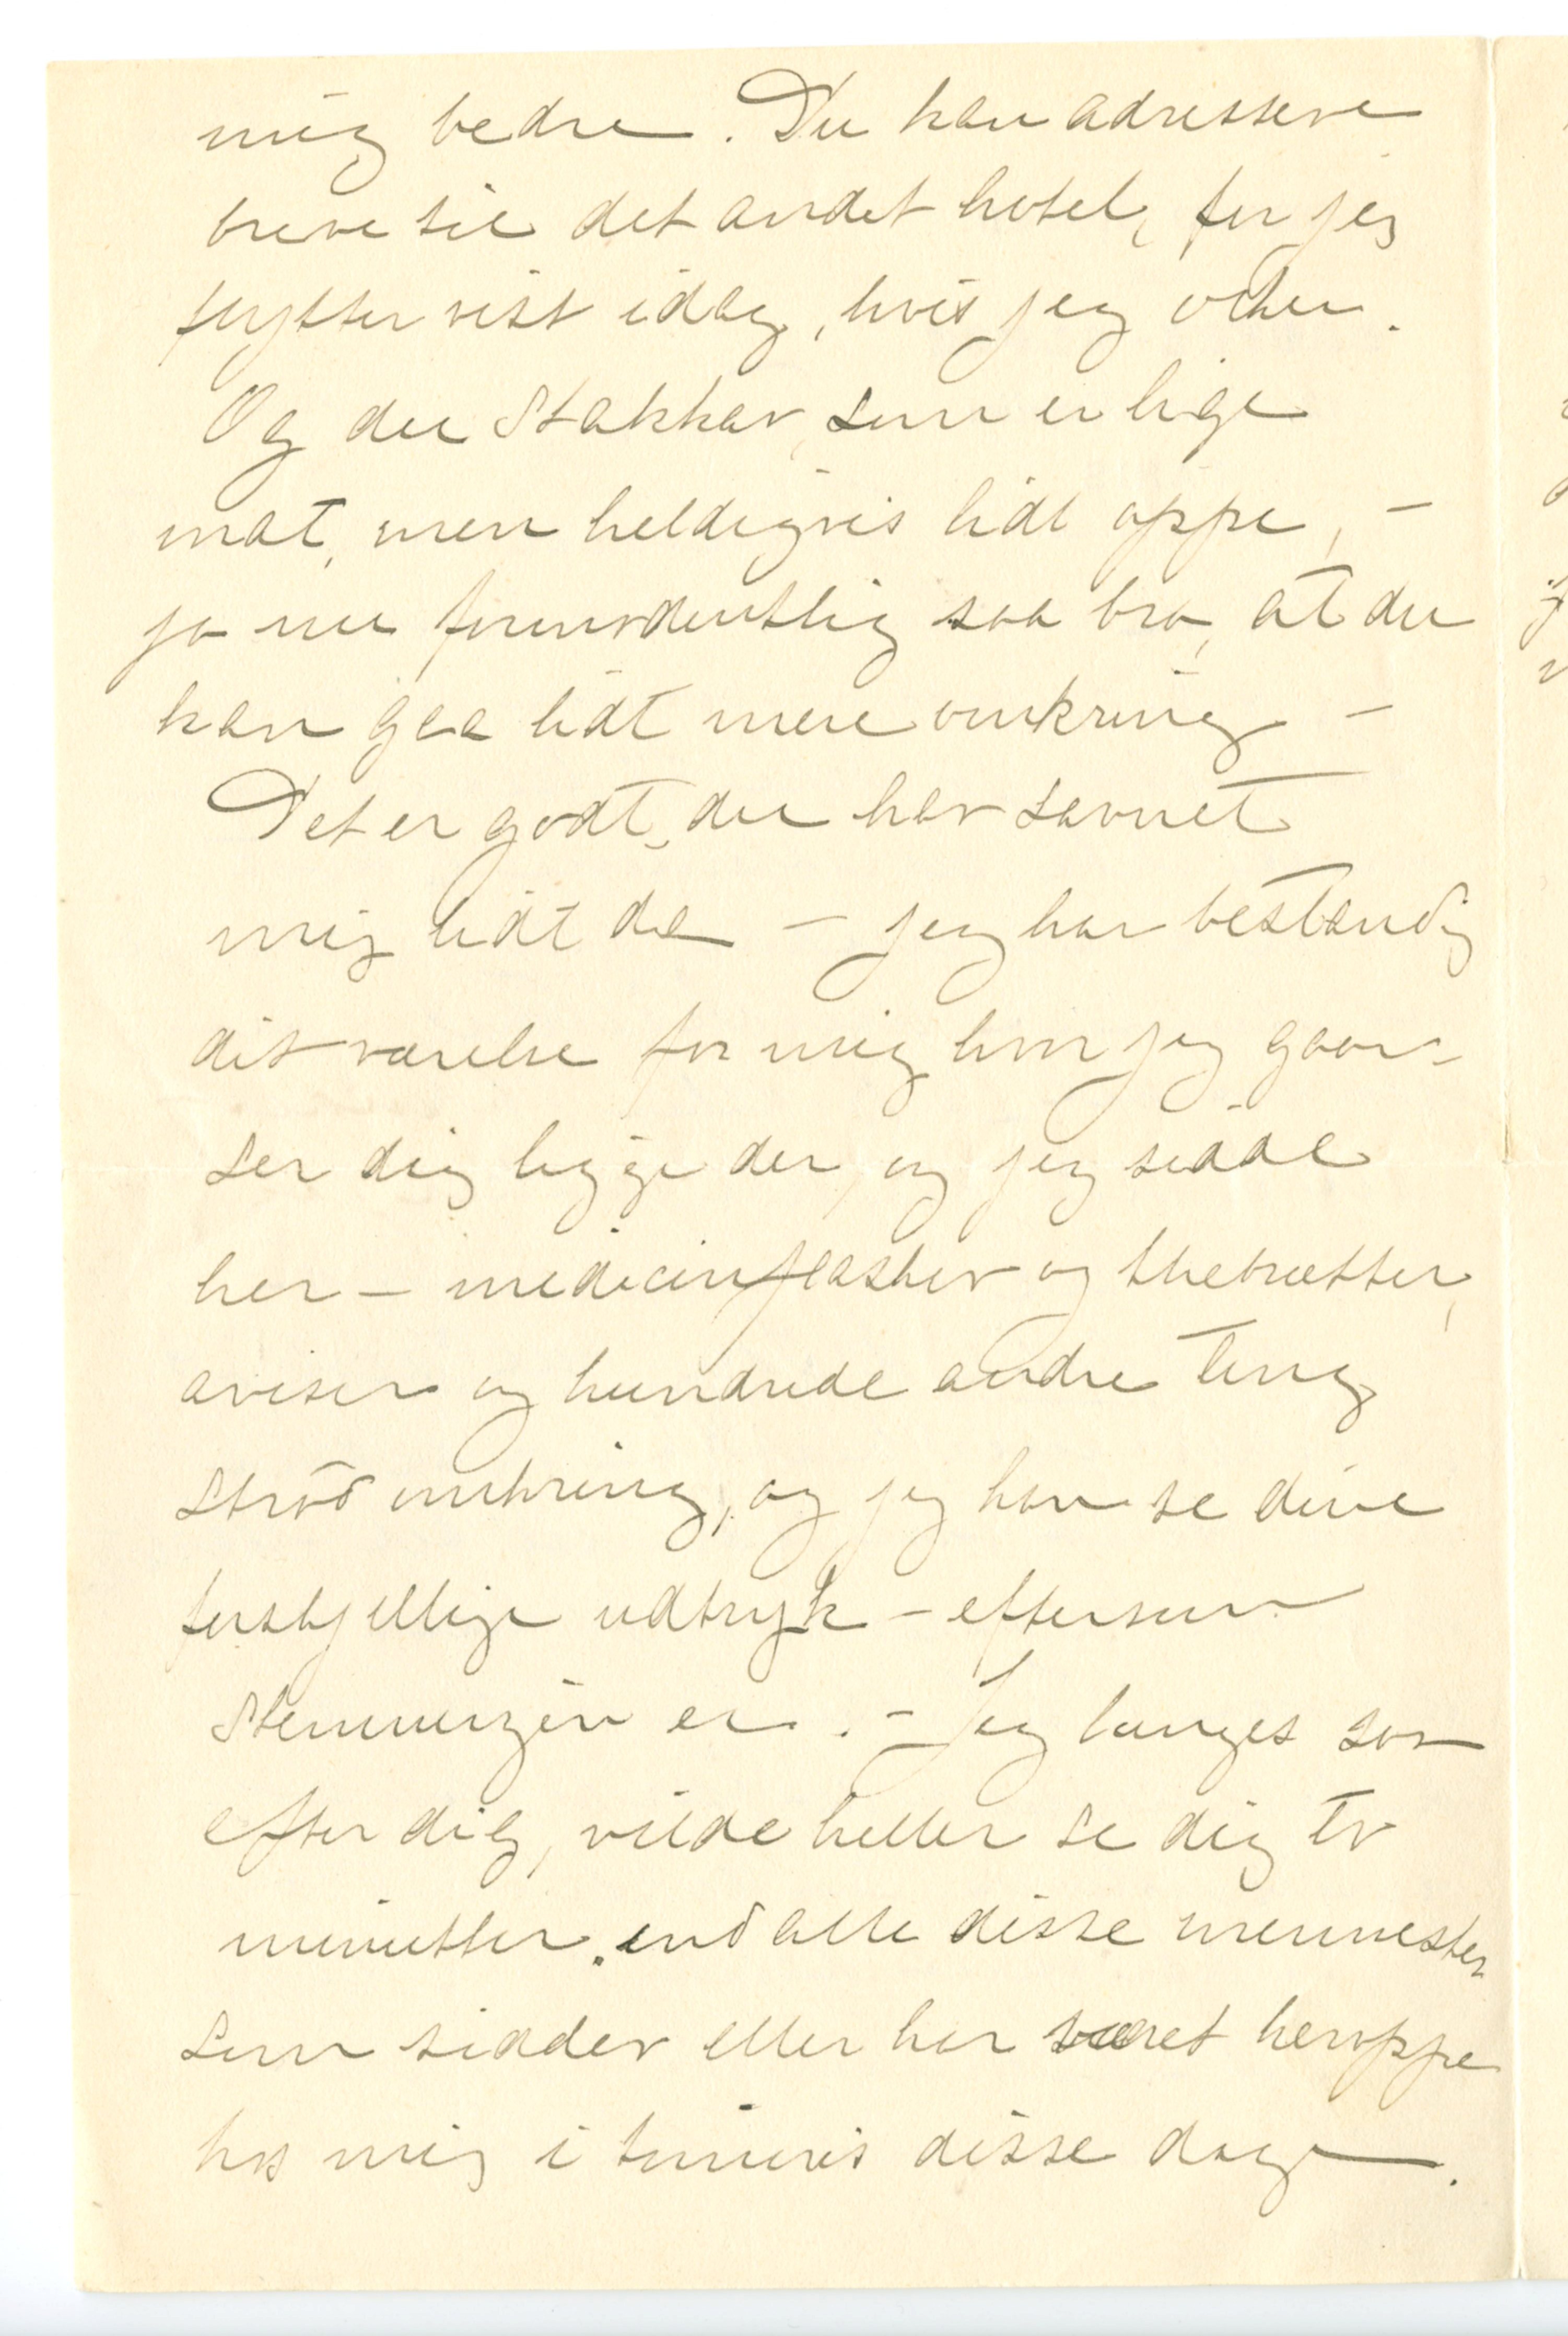 mig bedre. Du kan adressere
breve til det andet hotel, for jeg
flytter vist idag, hvis jeg orker.
Og du Stakkar, som er lige
mat, men heldigvis lidt oppe, –
ja nu formodentlig saa bra, at du
kan gaa lidt mere omkring –
Det er godt, du har savnet
mig lidt da – jeg har bestandig
dit værelse for mig hvor jeg gaar –
ser dig ligge der, og jeg sidde
her – medicinflasker og thebretter,
aviser og hundrede andre ting
strød omkring, og jeg kan se dine
forskjellige udtryk – eftersom
Stemningen er. – Jeg længes saa
efter dig, vilde heller se dig to
minutter, end alle disse mennesker
som sidder eller har været heroppe
hos mig i timevis disse dage.